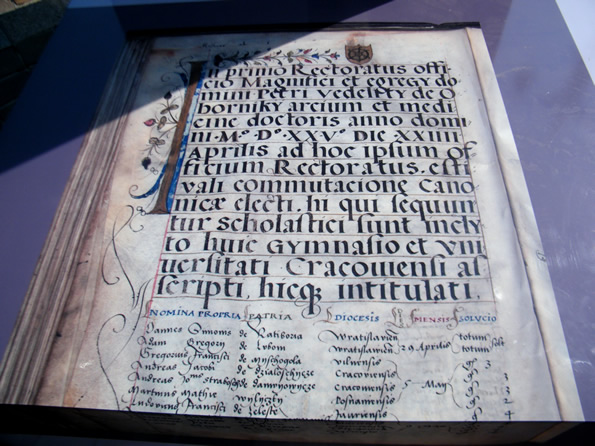 In primo Rectoratus offi
cio Magnifici et egregy do
mini Petri Vedelsky de O
borniky arcium et medi
cine doctoris anno domi
ni · M° · D° · XXV° · DIE XXIIII
Aprilis ad hoc ipsum of
ficium Rectoratus. esti
vali commutacione Cano
nicæ electi. hi qui sequun
tur scholastici sunt incly
to huic GYMNASIO et vni
uersitati Cracouiensi as
scripti. hicq intitulati.
NOMINA PROPRIA PATRIA DIOCESIS SOLVCIO
Joannes Simonis de Ratiboria Wratislavien totum
Adam Gregory de Wratislavien 29 Aprilis totum solt
Gregorius Francisci de Vilnensis 3
Andreas Jacobi de Cracoviensis
Andreas de Cracoviensis 5 May 3
Martinus Mathie Posnaniensis 2
Francisci de Jauriensis 4